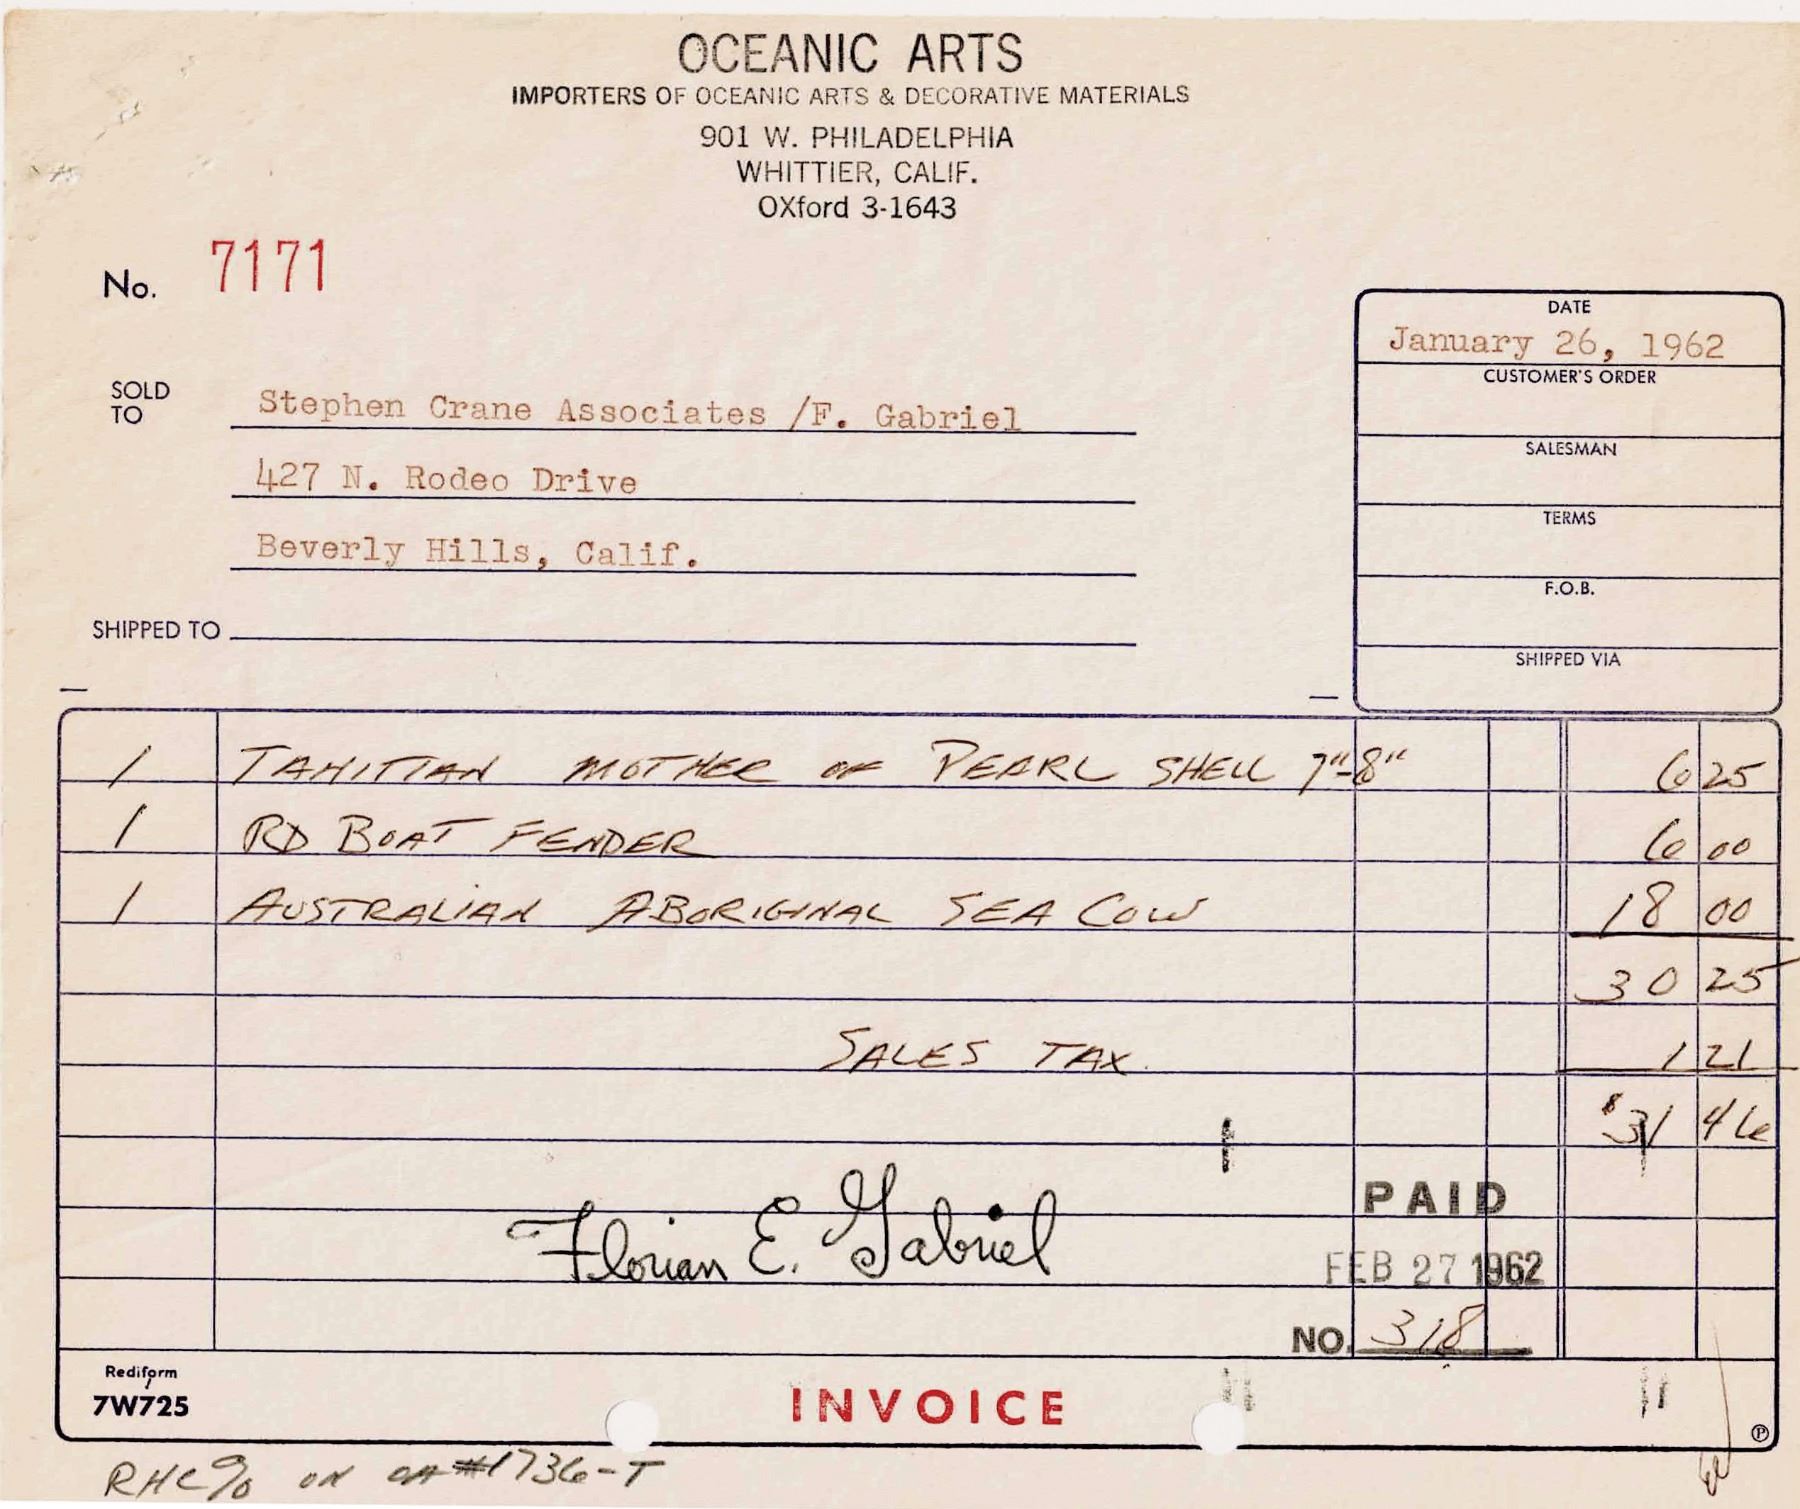 OCEANIC ARTS
IMPORTERS OF OCEANIC ARTS & DECORATIVE MATERIALS
901 W. PHILADELPHIA
WHITTIER, CALIF.
OXford 3-1643
No. 7171
DATE
January 26, 1962
CUSTOMER'S ORDER
SALESMAN
TERMS
F.O.B.
SHIPPED VIA
SOLD TO Stephen Crane Associates /F. Gabriel
427 N. Rodeo Drive
Beverly Hills, Calif.
SHIPPED TO
1 TAHITIAN MOTHER OF PEARL SHELL 7"-8" 6 25
1 RD BOAT FENDER 6 00
1 AUSTRALIAN ABORIGINAL SEA COW 18 00
30 25
SALES TAX 1 21
$31 46
PAID
Florian E. Gabriel
FEB 27 1962
NO. 318
Rediform
7W725
INVOICE
P
ON #1736-T